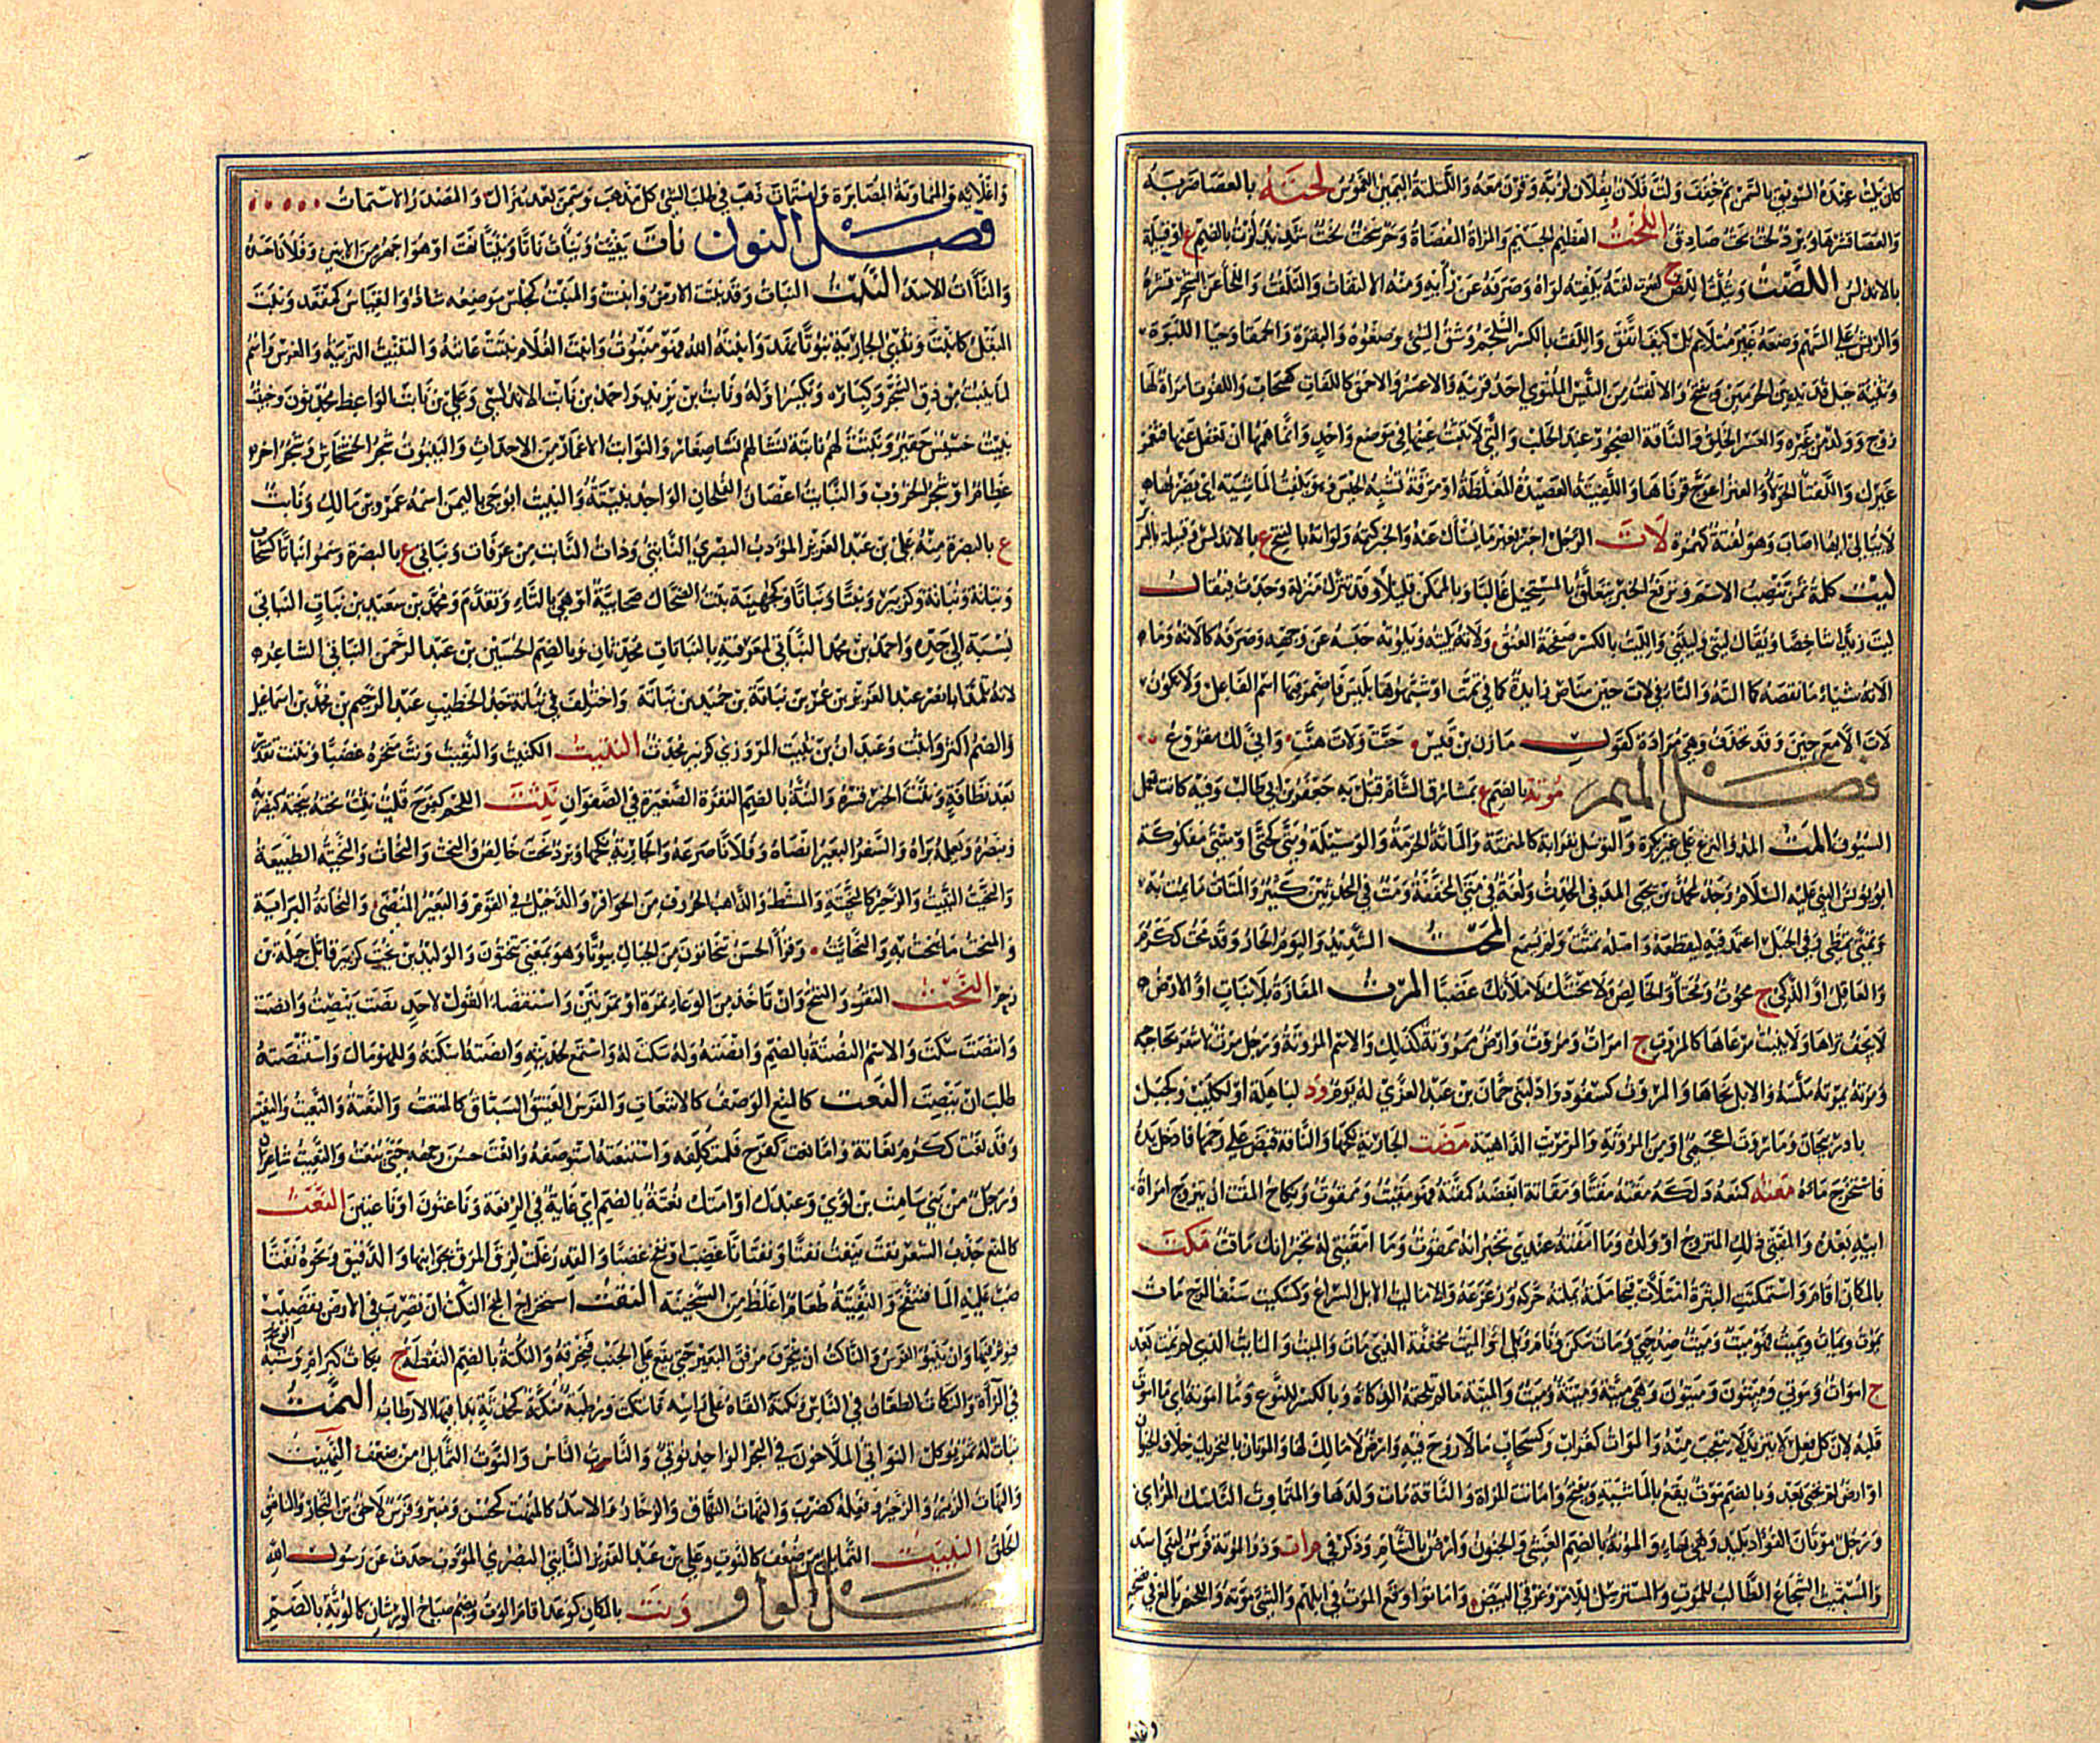 كان يلت عنده السويق بالسمن ثم خفف ولت فلان بفلان لز به وقرن معه واللتلتة اليمين الغموس لحته بالعصا ضربه
والعصا قشرها وبرد لحت بحت صادق اللخت العظيم الجسيم والمرأة المفضاة وحر سخت لخت شديد لرت بالضم ع او قبيلة
بالاندلس اللصت ويثلث اللص ج لصوت لفته يلفته لواه وصرفه عن رأيه ومنه الالتفات والتلفت واللحاء عن الشجر قشره
والريش على السهم وضعه غير متلائم بل كيف اتفق واللفت بالكسر السلجم وشق الشئ وصغوه والبقرة والحمقاء وحياء اللبوة
وثنية جبل قديد بين الحرمين ويفتح والالفت من التيس الملتوي احد قرنيه والاعسر والاحمق كاللفات كسحاب واللفوت امرأة لها
زوج وولد من غيره والعسر الخلق والناقة الضجور عند الحلب والتي لا تثبت عينها في موضع واحد وانما همها ان تغفل عنها فتغمز
غيرك واللفتاء الحولاء والعنز اعوج قرناها واللفيتة العصيدة المغلظة او مرقة تشبه الحيس ويلفت الماشية اي يضربها
لا يبالي ايها اصاب وهو لفتة كهمزة لات الرجل اخبر بغير ما يسأل عنه والخبر كتمه ولواتة بالفتح ع بالاندلس وقبيلة بالبربر
ليت كلمة تمن تنصب الاسم وترفع الخبر تتعلق بالمستحيل غالبا وبالممكن قليلا وقد تنزل منزلة وجدت فيقال
ليت زيدا شاخصا ويقال ليتي وليتني والليت بالكسر صفحة العنق ولاته يليته ويلوته حبسه عن وجهه وصرفه كالاته وما
الاته شيئا ما نقصه كالته والتاء في لات حين مناص زائدة كما في ثمت او شبهوها بليس فاضمر فيها اسم الفاعل ولا تكون
لات الا مع حين وقد تحذف وهي مرادة كقول مازن بن قيس حنت ولات هنت واني لك مقروع
فصل الميم مؤتة بالضم ع بمشارق الشام قتل به جعفر بن ابي طالب وفيه كانت تعمل
السيوف المت المد والنزع على غير بكرة والتوسل بقرابة كالمتمتة والماتة الحرمة والوسيلة ومتى كحتى او متى مفكوكة
ابو يونس النبي عليه السلام وجد لمحمد بن يحيى المدني المحدث ولغة في متى المخففة ومت في المحدثين كبير والمتات ما يمت به
وتمتى تمطى وفي الحبل اعتمد فيه ليقطعه واصله تمتت ولم يسمع المحت الشديد واليوم الحار وقد محت ككرم
والعاقل او الذكي ج محوت ومحتاء والخالص ولامحتنك لاملأنك غضبا المرت المفازة بلا نبات او الارض
لا يجف ثراها ولا ينبت مرعاها كالمروت ج امرات ومروت وارض ممروتة كذلك والاسم المروتة ورجل مرت لا شعر بحاجبه
ومرته يمرته ملسه والابل نحاها والمروت كسفود واد لبني حمان بن عبد العزى له يوم ود لباهلة او لكليب وكجبل
باذربيجان وماروت اعجمي او من المروتة والمرمريت الداهية مصت الجارية نكحها والناقة قبض على رحمها فادخل يده
فاستخرج ماءه معته كمنعه دلكه مقته مقتا ومقاتة ابغضه كمقته فهو مقيت وممقوت ونكاح المقت ان يتزوج امرأة
ابيه بعده والمقتي ذلك المتزوج او ولده وما امقته عندي تخبر انه ممقوت وما امقتني له تخبر انك ماقت مكت
بالمكان اقام واستمكتت البثرة امتلأت قيحا ململته يملته حركه وزعزعه والاماليت الابل السراع وكسكيت سنف المرخ مات
يموت ويمات ويميت فهو ميت وميت ضد حي ومات سكن ونام وبلي او الميت مخففة الذي مات والميت والمائت الذي لم يمت بعد
ج اموات وموتى وميتون وميتون وهي ميتة وميتة وميت والميتة ما لم تلحقه الذكاة وبالكسر للنوع وما اموته اي ما اموت
قلبه لان كل فعل لا يتزيد لا يتعجب منه والموات كغراب وكسحاب ما لا روح فيه وارض لا مالك لها والموتان بالتحريك خلاف الحيوان
او ارض لم تحي بعد وبالضم موت يقع بالماشية ويفتح واماتت المرأة والناقة مات ولدها والمتماوت الناسك المرائي
ورجل موتان الفؤاد بليد وهي بهاء والموتة بالضم الغشي والجنون وارض بالشام وذكر في مرات وذو الموتة فرس لبني اسد
والمستميت الشجاع الطالب للموت والمسترسل للامر وغرقئ البيض واماتوا وقع الموت في ابلهم والشئ موته واللحم بالغ في نضجه
واغلائه والمماوتة المصابرة واستمات ذهب في طلب الشئ كل مذهب وسمن بعد هزال والمصدر الاستمات
فصل النون نأت ينئت وينأت نأتا ونئيتا نأت او هو اجهر من الانين وفلانا حسده
والنأآت الاسد النبت النبات وقد نبتت الارض وانبتت والمنبت كمجلس موضعه شاذ والقياس كمقعد ونبت
البقل كانبت وثدي الجارية نبوتا نهد وانبته الله فهو منبوت وانبت الغلام نبتت عانته والتنبيت التربية والغرس واسم
لما ينبت من دق الشجر وكباره وتكسر اوله ونابت بن يزيد واحمد بن نابت الاندلسي وعلي بن نابت الواعظ محدثون وخبيث
نبيت خسيس حقير ونبتت لهم نابتة نشأ لهم نشء صغار والنوابت الاغمار من الاحداث والينبوت شجر الخشخاش وشجر اخر
عظام او شجر الخروب والنبائت اغصان الفلجان الواحد نبيتة والنبيت ابو حي باليمن اسمه عمرو بن مالك ونابت
ع بالبصرة منه علي بن عبد العزيز المؤدب البصري النابتي وذات النابت من عرفات ونباتي ع بالبصرة وسموا نباتا كسحاب
ونباتة ونباتة وكزبير ونبتا ونباتا وكجهينة بنت الضحاك صحابية او هي بالتاء وتقدم ومحمد بن سعيد بن نبات النباتي
نسبة الى جده واحمد بن محمد النباتي لمعرفته بالنباتات محدثان وبالضم الحسين بن عبد الرحمن النباتي الشاعر
لانه تلميذ ابا نصر عبد العزيز بن عمر بن نباتة بن حميد بن نباتة واختلف في نباتة جد الخطيب عبد الرحيم بن محمد بن اسماعيل
والضم اكثر واثبت وعبدان بن نبيت المروزي كزبير محدث النتيت الكتيت والنفيت ونت منخره غضبا ونتنت تقذر
بعد نظافة ونتت الخبر فسره والنتة بالضم النقرة الصغيرة في الصفوان نثت اللحم كفرح قلب ثنت نحته ينحته كيضربه
وينصره ويعلمه براه والسفر البعير انضاه وفلانا صرعه والجارية نكحها وبرد نحت خالص والنحت والنحات والنحيتة الطبيعة
والنحيت النئيت والزحير كالنحيتة والمشط والذاهب الحروف من الحوافر والدخيل في القوم والبعير المنضى والنحاتة البراية
والمنحت ما ينحت به والنحائت وقرأ الحسن تنحاتون من الجبال بيوتا وهو بمعنى تنحتون والوليد بن نحيت كزبير قاتل جبلة بن
زحر النخت النقر والنتخ وان تاخذ من الوعاء تمرة او تمرتين واستقصاء القول لاحد نصت ينصت وانصت
وانتصت سكت والاسم النصتة بالضم وانصته وله سكت له واستمع لحديثه وانصته اسكته وللهو مال واستنصته
طلب ان ينصت النعت كالمنع الوصف كالانتعات والفرس العتيق السباق كالمنتعت والنعتة والنعيت والنعيتة
وقد نعت ككرم نعاتة واما نعت كفرح فلمتكلفه واستنعته استوصفه وانعت حسن وجهه حتى ينعت والنعيت شاعران
ورجل من بني سامة بن لؤي وعبدك او امتك نعتة بالضم اي غاية في الرفعة وناعتون او ناعتين النغت
كالمنع جذب الشعر نفت ينفت نفتا ونفتانا غضب او نفخ غضبا والقدر غلت لزق المرق بجوانبها والدقيق ونحوه نفتا
صب عليه الماء فتنفخ والنفيتة طعام اغلظ من السخينة النقت استخراج المخ النكت ان تضرب في الارض بقضيب
فيؤثر فيها وان ينبو الفرس والناكت ان ينحرف مرفق البعير حتى يقع على الجنب فيخرقه والنكتة بالضم النقطة ج نكات كبرام وشبه الوسخ
في المرآة والنكات الطعان في الناس ونكته القاه على راسه فانتكت ورطبة منكتة كمحدثة بدا فيها الارطاب النمت
نبات له ثمر يؤكل النواتي الملاحون في البحر الواحد نوتي والنات الناس والنوت التمايل من ضعف النهيت
والنهات الزئير والزحير فعله كضرب والنهات النهاق والزحار والاسد كالمنهت كمحسن ومنبر وفرس لاحق بن النجار والناهت
الحلق النيت التمايل من ضعف كالنوت وعلي بن عبد العزيز النابتي البصري المؤدب حدث عن رسول الله
فصل الواو وبت بالمكان كوعد اقام الوت ويضم صياح الورشان كالوتة بالضم